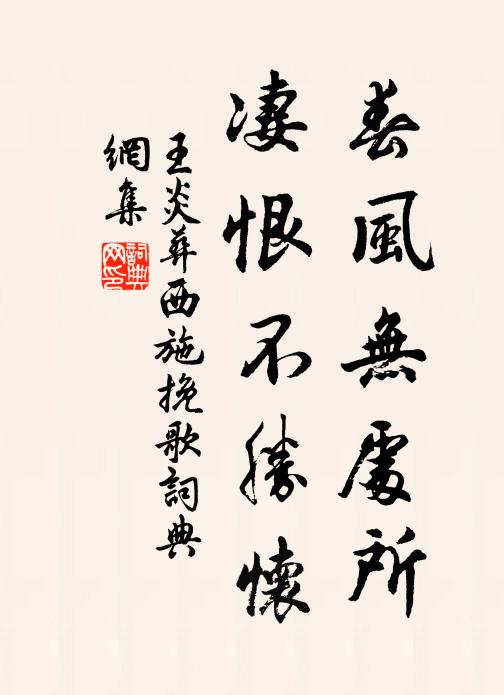 春風無處所
凄恨不勝懷
王炎葬西施挽歌詞典
網集
詞典網印